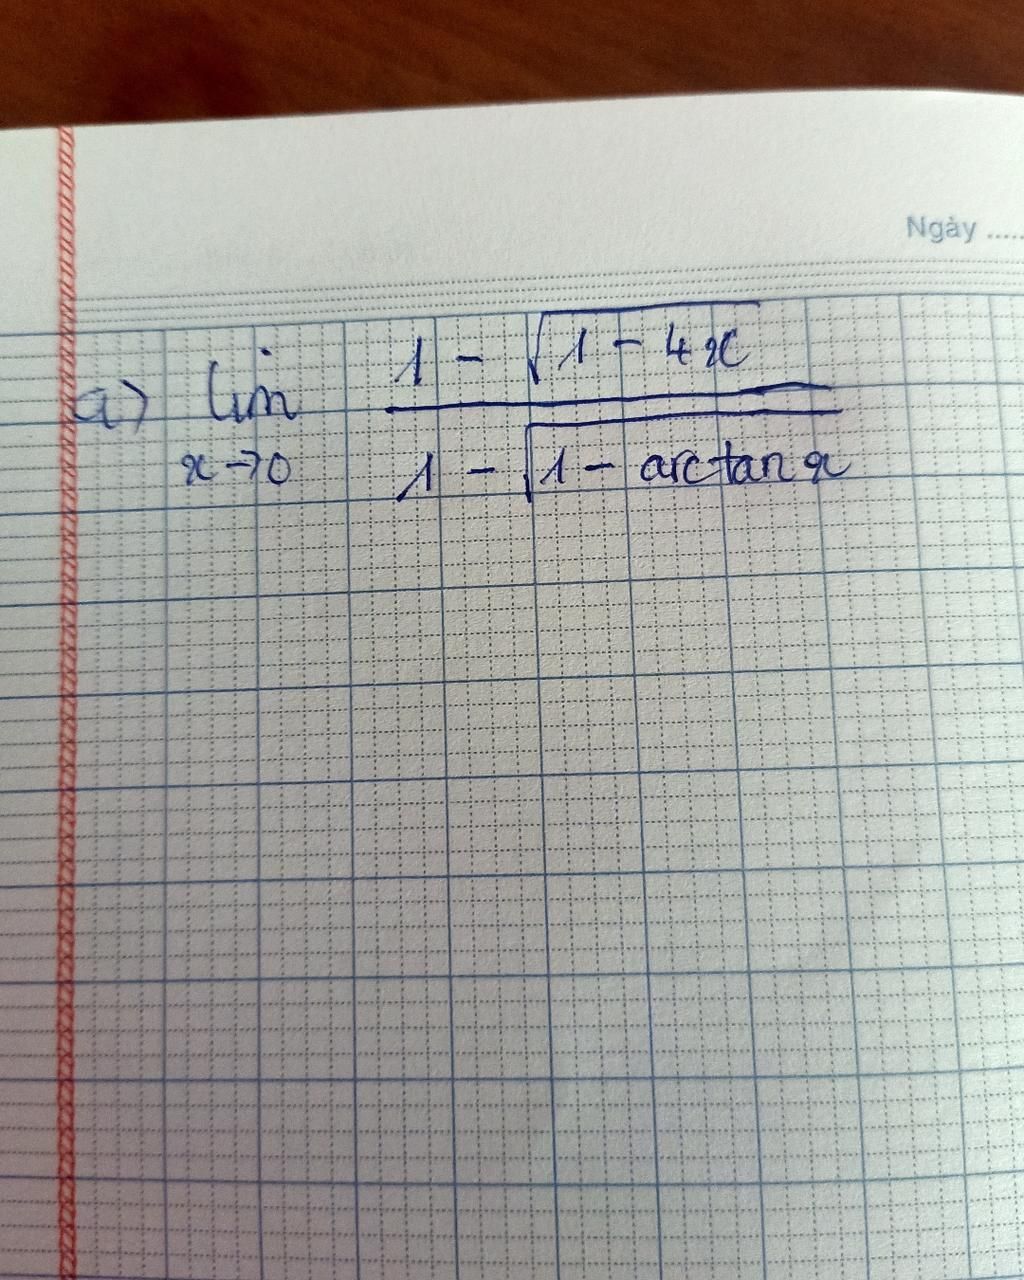 Ngày .....
a) lim 1 - √(1 - 4x)
x→0 1 - √(1 - arctan x)